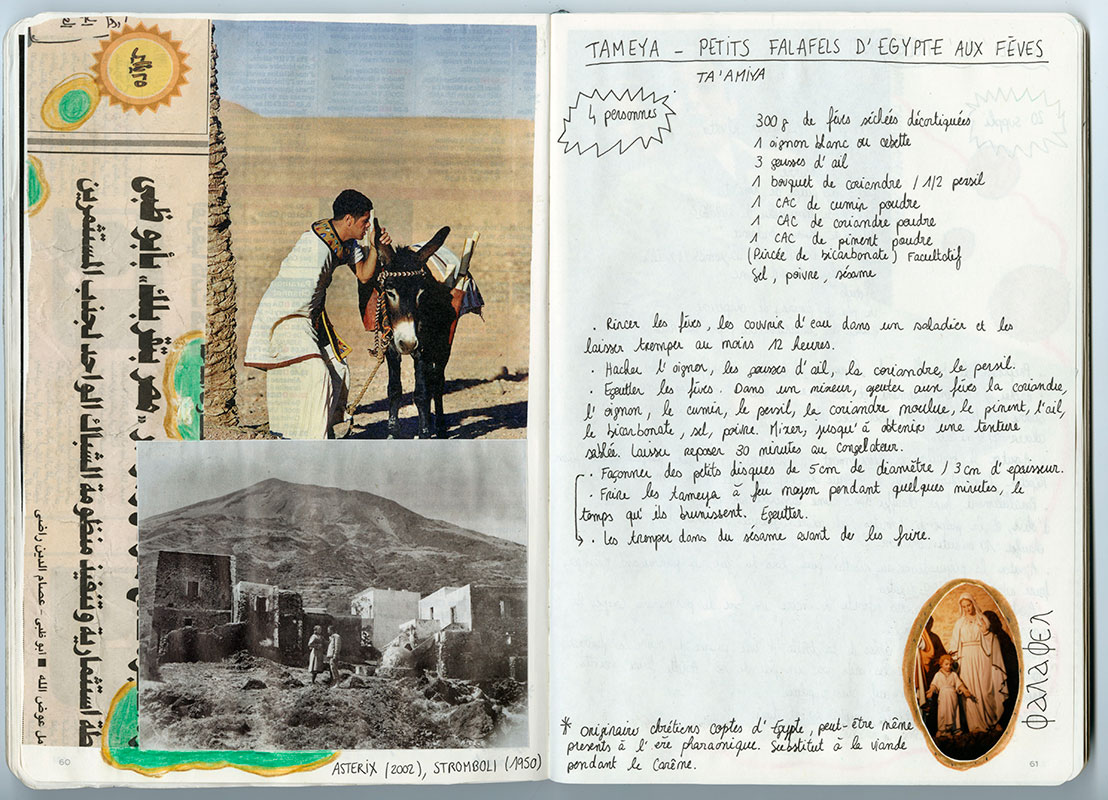 بأبو ظبي
طة استثمارية وتنفيذ منظومة الشباك الواحد لجذب المستثمرين
مل عوض الله ■ ابو ظبى - عصام الدين راضى
ASTERIX (2002), STROMBOLI (1950)
60
TAMEYA - PETITS FALAFELS D'EGYPTE AUX FÈVES
TA'AMIYA
4 personnes
300 g de fèves séchées décortiquées
1 oignon blanc ou cebette
3 gousses d'ail
1 bouquet de coriandre / 1/2 persil
1 CAC de cumin poudre
1 CAC de coriandre poudre
1 CAC de piment poudre
(Pincée de bicarbonate) Facultatif
Sel, poivre, sésame
. Rincer les fèves, les couvrir d'eau dans un saladier et les
laisser tremper au moins 12 heures.
. Hacher l'oignon, les gousses d'ail, la coriandre, le persil.
. Egoutter les fèves. Dans un mixeur, ajouter aux fèves la coriandre,
l'oignon, le cumin, le persil, la coriandre moulue, le piment, l'ail,
le bicarbonate, sel, poivre. Mixer, jusqu'à obtenir une texture
sablée. Laisser reposer 30 minutes au congélateur.
. Façonner des petits disques de 5cm de diamètre / 3cm d'epaisseur.
. Frire les tameya à feu moyen pendant quelques minutes, le
temps qu'ils brunissent. Egoutter.
. Les tremper dans du sésame avant de les frire.
* Originaire chrétiens coptes d'Egypte, peut-être même
présents à l'ère pharaonique. Substitut à la viande
pendant le Carême.
ⲫⲁⲗⲁⲫⲉⲗ
61